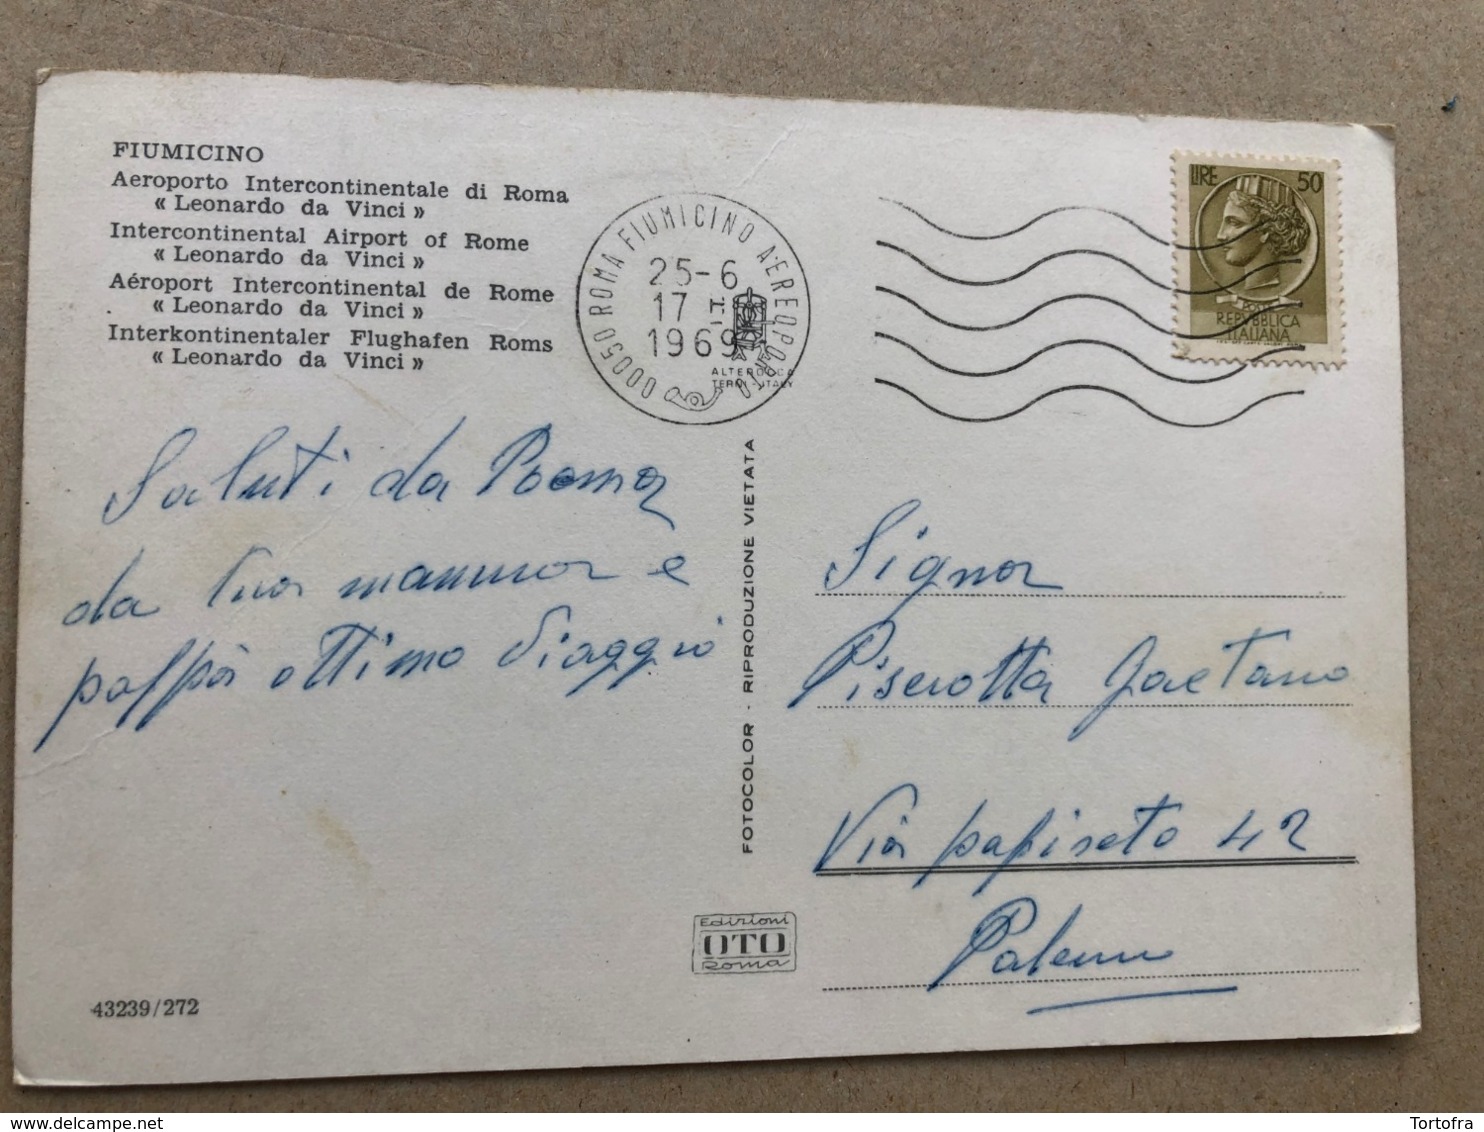 FIUMICINO
Aeroporto Intercontinentale di Roma
« Leonardo da Vinci »
Intercontinental Airport of Rome
« Leonardo da Vinci »
Aéroport Intercontinental de Rome
« Leonardo da Vinci »
Interkontinentaler Flughafen Roms
« Leonardo da Vinci »
00050 ROMA FIUMICINO AEREOPORTO
25-6
17
1969
ALTEROCCA
TERNI - ITALY
LIRE 50
POSTE
REPVBBLICA
ITALIANA
Saluti da Roma
da tua mamma e
pappà ottimo viaggio
FOTOCOLOR - RIPRODUZIONE VIETATA
Signor
Gaetano
Via 42
Palermo
Edizioni
OTO
Roma
43239/272
Tortofra